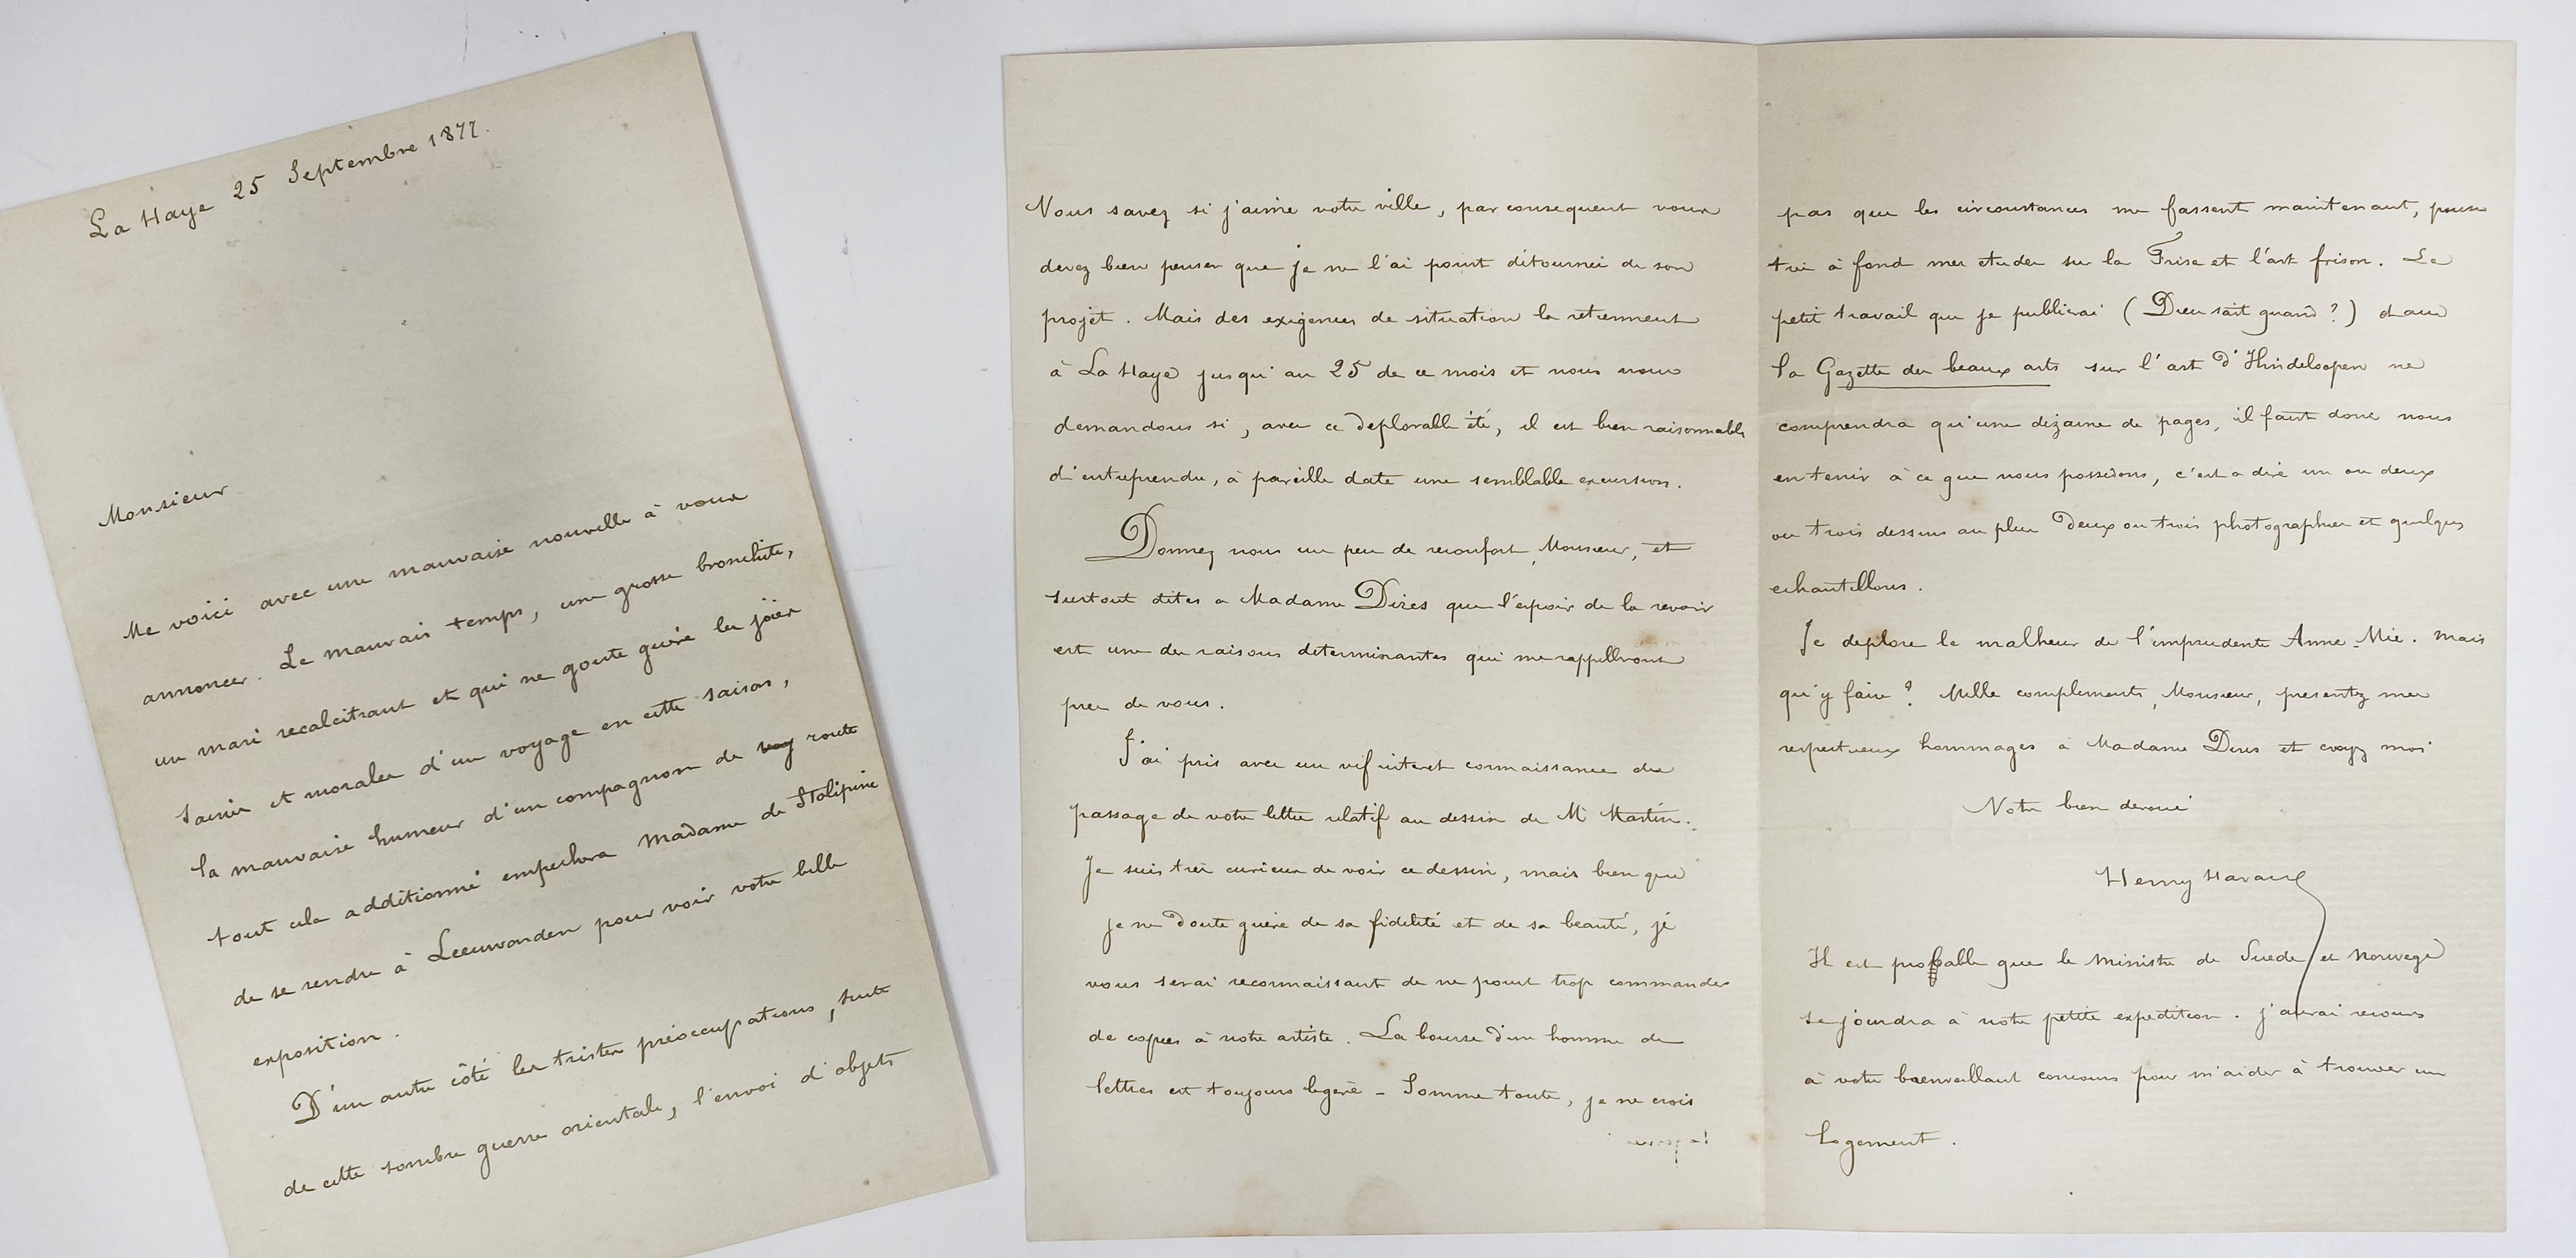 La Haye 25 Septembre 1877.
Monsieur
Me voici avec une mauvaise nouvelle à vous
annoncer. Le mauvais temps, une grosse bronchite,
un mari recalcitrant et qui ne goute guère les joies
saines et morales d'un voyage en cette saison,
la mauvaise humeur d'un compagnon de voy route
tout cela additionné empechera Madame de Stolipine
de se rendre à Leeuwarden pour voir votre belle
exposition.
D'un autre côté les tristes préoccupations, suite
de cette sombre guerre orientale, l'envoi d'objets
Vous savez si j'aime votre ville, par consequent vous
devez bien penser que je ne l'ai point détournée de son
projet. Mais des exigences de situation la retiennent
à La Haye jusqu'au 25 de ce mois et nous nous
demandons si, avec ce deplorable été, il est bien raisonnable
d'entreprendre, à pareille date une semblable excursion.
Donnez nous un peu de reconfort, Monsieur, et
surtout dites a Madame Dirks que l'espoir de la revoir
est une des raisons determinantes qui me rappelleront
pres de vous.
J'ai pris avec un vif interet connaissance du
passage de votre lettre relatif au dessin de Mr Martin.
Je suis très curieux de voir ce dessin, mais bien que
je ne doute guère de sa fidelité et de sa beauté, je
vous serai reconnaissant de ne point trop commander
de copies à notre artiste. La bourse d'un homme de
lettres est toujours legere – Somme toute, je ne crois
pas que les circonstances me fassent maintenant, pousse
trai à fond mes etudes sur la Frise et l'art frison. Le
petit travail que je publierai (Dieu sait quand?) dans
la Gazette des beaux arts sur l'art d'Hindeloopen ne
comprendra qu'une dizaine de pages, il faut donc nous
en tenir à ce que nous possedons, c'est a dire un ou deux
ou trois dessins au plus deux ou trois photographies et quelques
echantillons.
Je deplore le malheur de l'imprudente Anne-Mie. Mais
qu'y faire? Mille compliments, Monsieur, presentez mes
respectueux hommages à Madame Dirks et croyez moi
Votre bien devoué
Henry Havard
Il est probable que le ministre de Suede et Norwege
se joindra à notre petite expedition. j'aurai recours
à votre bienveillant concours pour m'aider à trouver un
logement.